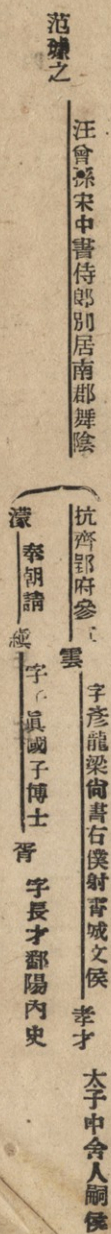 范璩之
汪曾孫宋中書侍郎別居南郡舞陰
抗齊郢府參
雲
字彥龍梁尙書右僕射霄城文侯
孝才
太子中舍人嗣侯
濛
奉朝請
縝
字眞國子博士
胥
字長才鄱陽內史